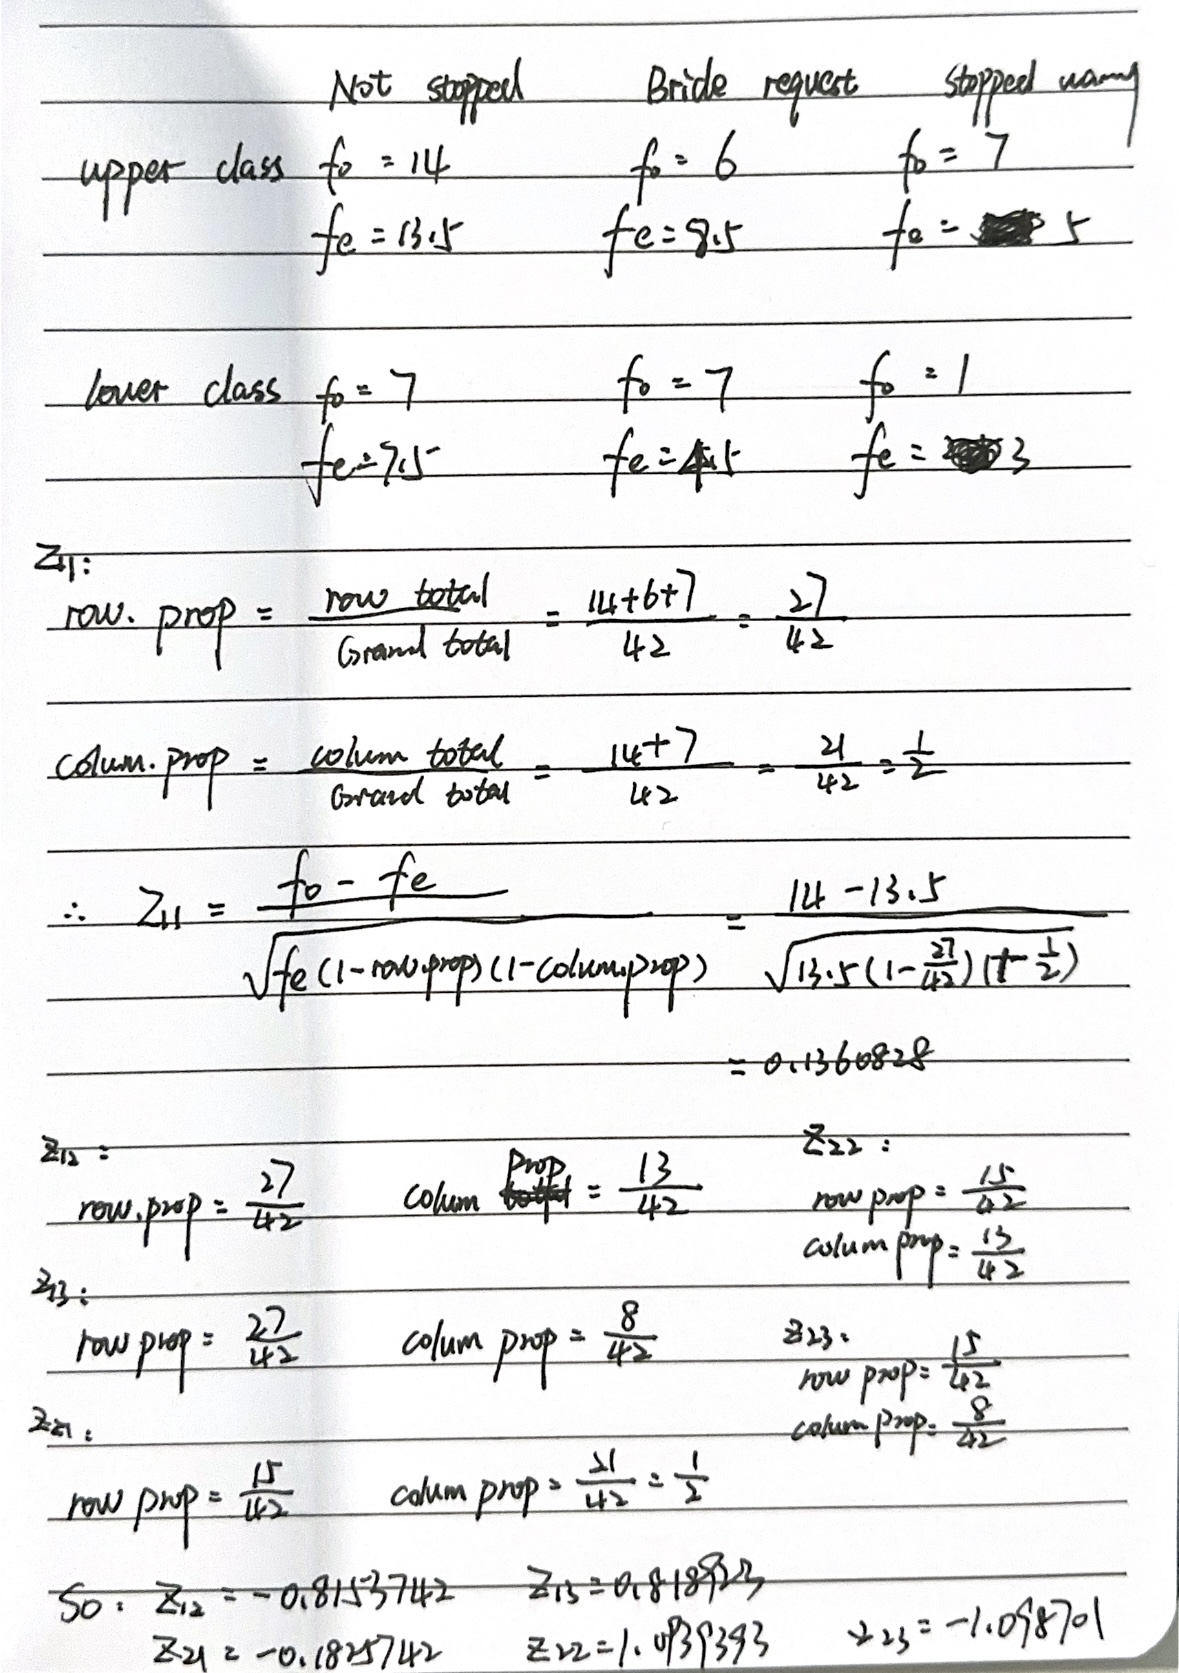 Not stopped Bride request stopped warng
upper class fo = 14 fo = 6 fo = 7
fe = 13.5 fe = 8.5 fe = 5
lower class fo = 7 fo = 7 fo = 1
fe = 7.5 fe = 4.5 fe = 3
Z11:
row. prop = row total / Grand total = 14+6+7 / 42 = 27/42
colum. prop = colum total / Grand total = 14+7 / 42 = 21/42 = 1/2
∴ Z11 = fo - fe / √fe (1-row.prop) (1-colum.prop) = 14 - 13.5 / √13.5 (1-27/42) (1-1/2)
= 0.1360828
Z12:
row.prop = 27/42 colum prop = 13/42
Z13:
row prop = 27/42 colum prop = 8/42
Z21:
row prop = 15/42 colum prop = 21/42 = 1/2
Z22:
row prop = 15/42
colum prop = 13/42
Z23:
row prop = 15/42
colum prop = 8/42
So: Z12 = -0.8153742 Z13 = 0.818923
Z21 = -0.1825742 Z22 = 1.0939393 Z23 = -1.098701